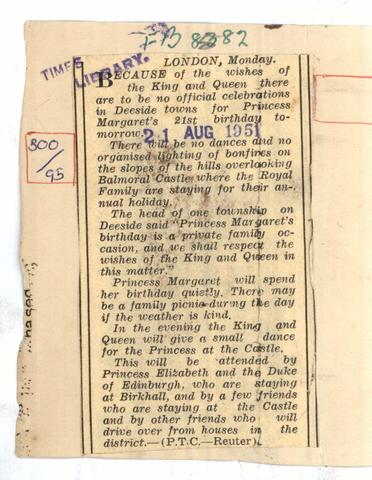 FB 8382
TIMES
LIBRARY.
300/95
LONDON, Monday.
BECAUSE of the wishes of
the King and Queen there
are to be no official celebrations
in Deeside towns for Princess
Margaret's 21st birthday to-
morrow.
21 AUG 1951
There will be no dances and no
organised lighting of bonfires on
the slopes of the hills overlooking
Balmoral Castle where the Royal
Family are staying for their an-
nual holiday.
The head of one township on
Deeside said "Princess Margaret's
birthday is a private family oc-
casion, and we shall respect the
wishes of the King and Queen in
this matter."
Princess Margaret will spend
her birthday quietly. There may
be a family picnic during the day
if the weather is kind.
In the evening the King and
Queen will give a small dance
for the Princess at the Castle.
This will be attended by
Princess Elizabeth and the Duke
of Edinburgh, who are staying
at Birkhall, and by a few friends
who are staying at the Castle
and by other friends who will
drive over from houses in the
district.—(P.T.C.—Reuter).